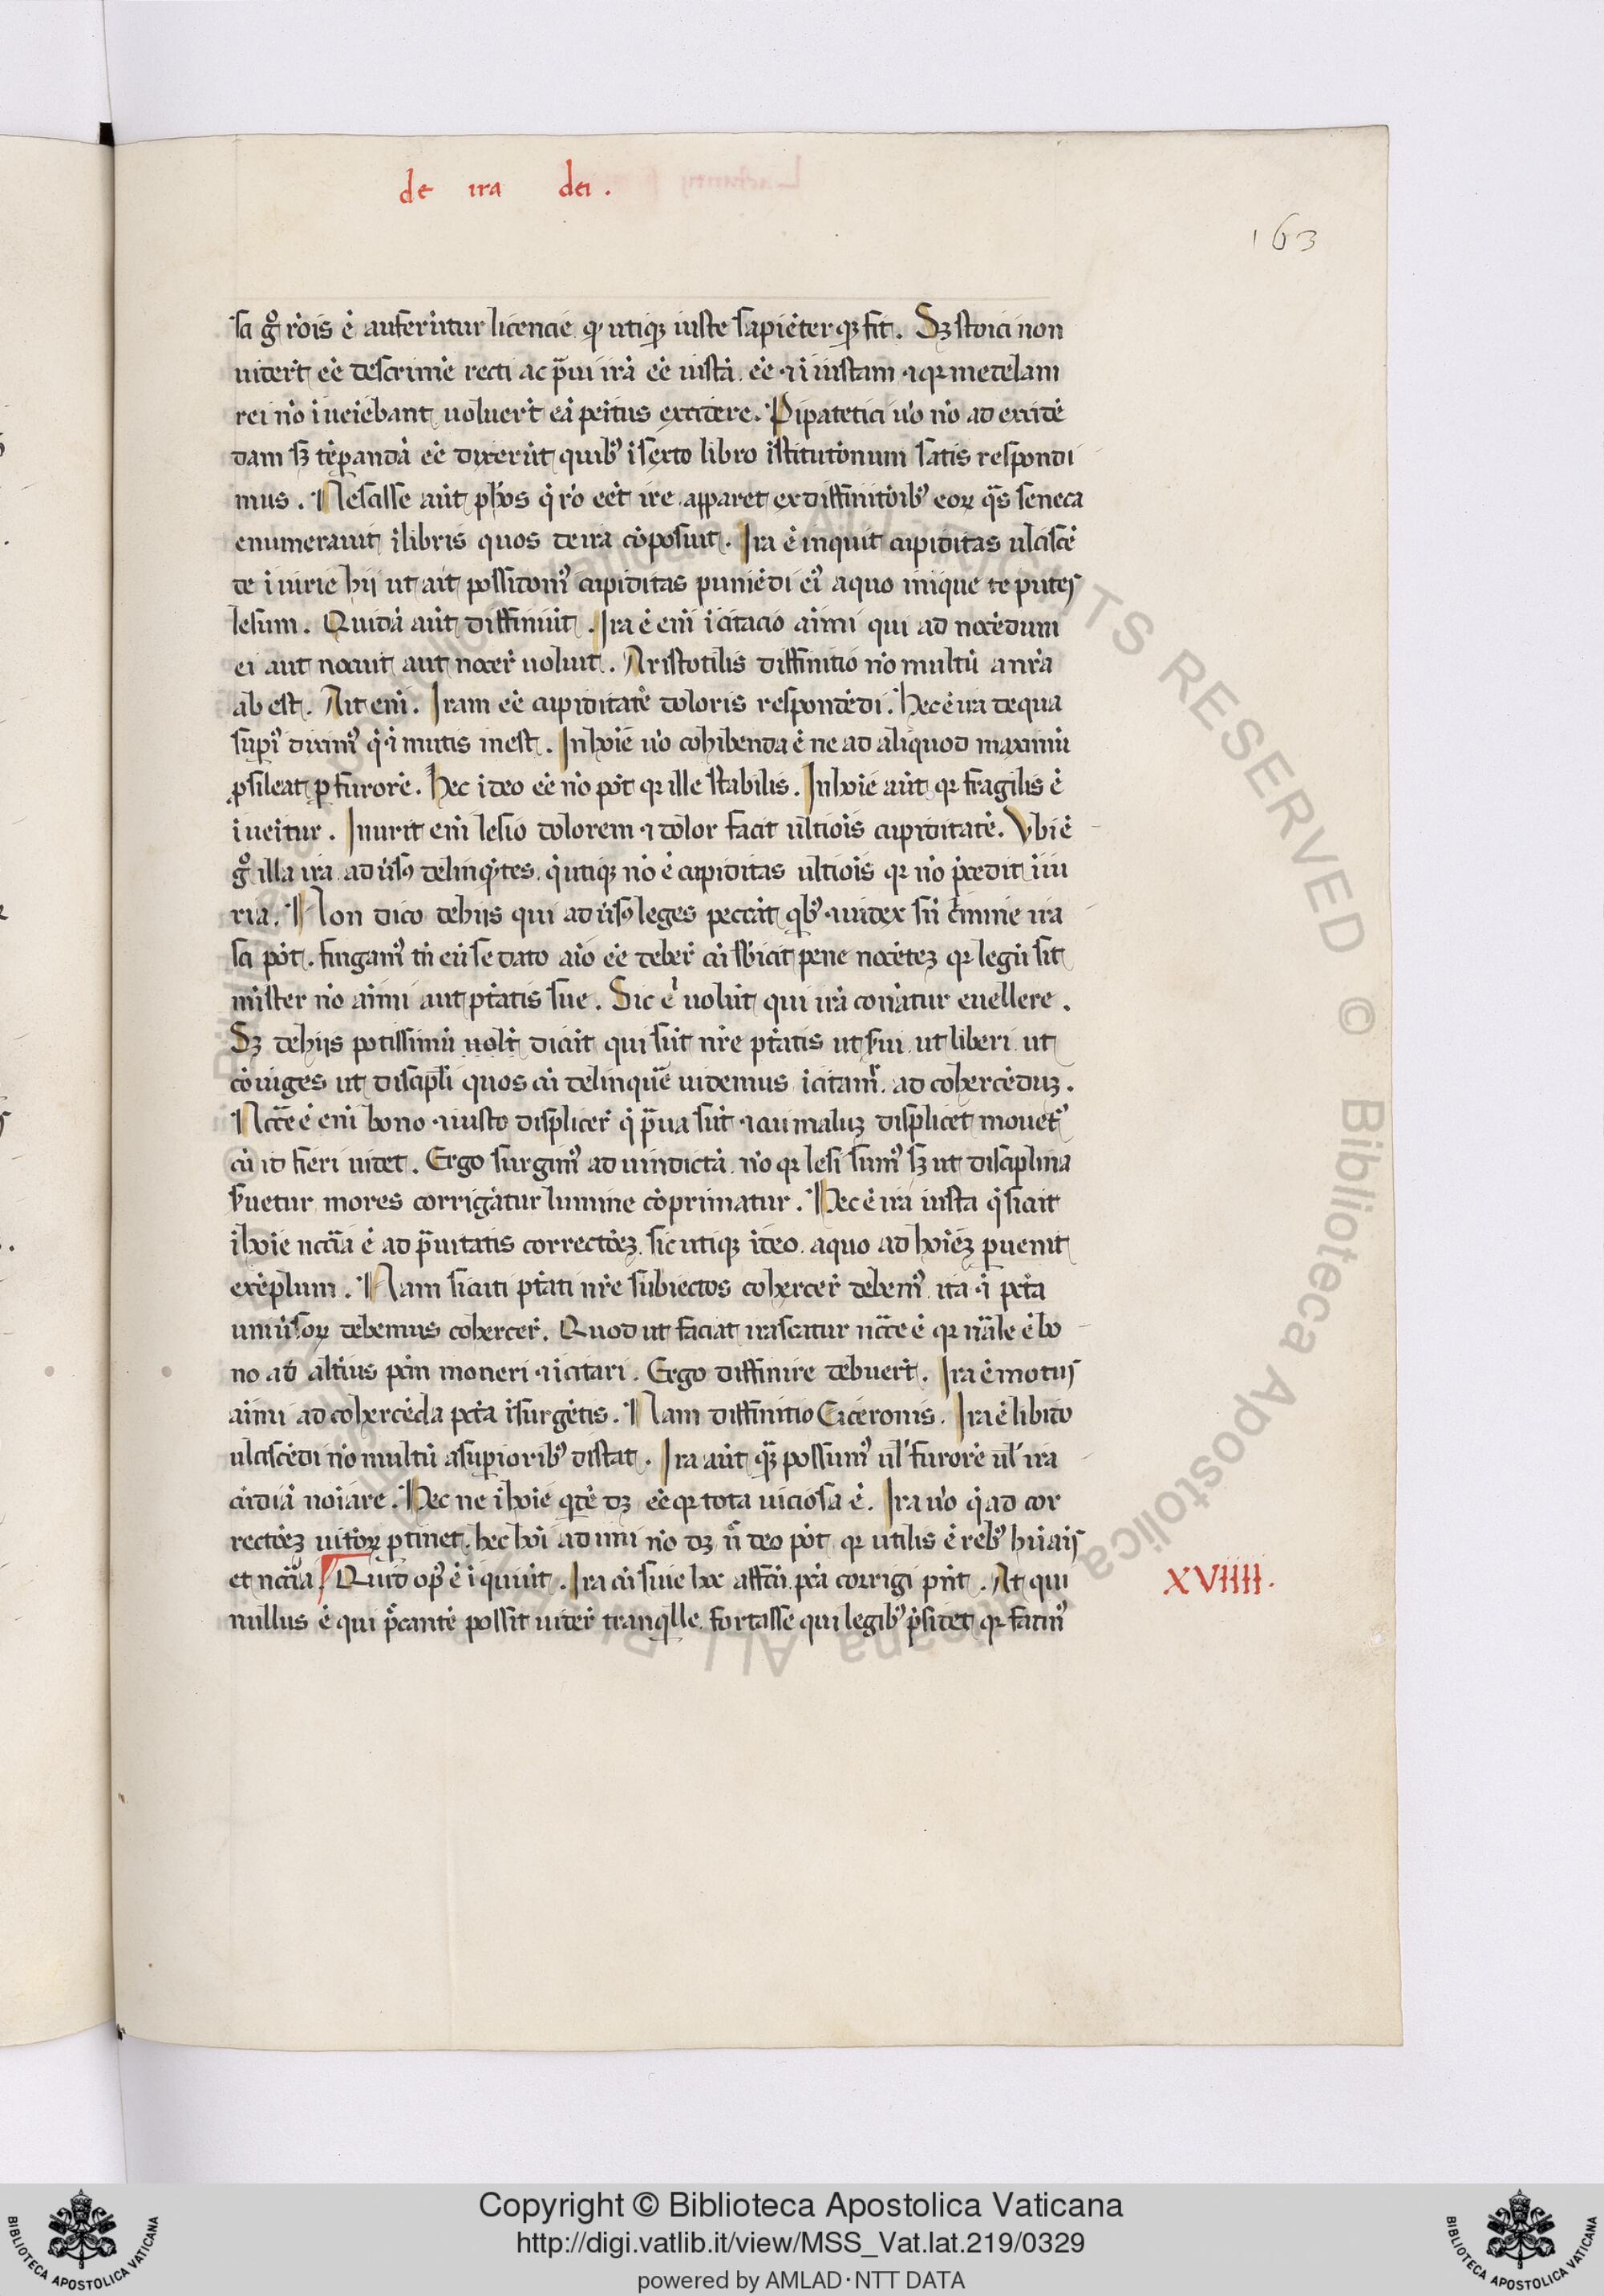 de ira dei .
163
sa gͦ rōis ē auferūtur licencie qͥ utiqꝫ iuste sapiēterqꝫ fit . Sꝫ stoici non
uidert̄ eē descrimē recti ac p̄ui irā eē iustā . eē ⁊ īiustam ⁊ qꝛ medelam
rei nō īueiēbant uoluert̄ eā peītus excidere . Pipatetici ūo nō ad excidē
dam sꝫ tēꝑandā eē dixerūt quibꝰ ī sexto libro īstitutōnum satis respondi
mus . Nescisse aūt ph̄os q̄ rō eēt ire apparet ex diffinitōibꝰ eoꝝ q̄s seneca
enumerauit ī libris quos de ira cōposuit . Ira ē inquit cupiditas ulciscē
de īiurie hij ut ait possidoniꝰ cupiditas puniēdi eiꝰ a quo inique te putes
lesum . Quidā aūt diffiniūt . Ira ē enī īcitacio aīmi qui ad nocēdum
ei aut nocuit aut nocer̄ uoluit . Aristotilis diffinitio nō multū a nr̄a
abest . Ait enī . Iram eē cupiditatē doloris respondēdi . Hec ē ira de qua
suꝑiꝰ diximꝰ q̄ ⁊ ī mutis inest . In hoīe ūo cohibenda ē ne ad aliquod maximū
ꝓsileat ꝑ furorē . Hec ī deo eē nō pōt qꝛ ille stabilis . In hoīe aūt qꝛ fragilis ē
īueītur . Inurit enī lesio dolorem ⁊ dolor facit ultiōis cupiditatē . Vbi ē
gͦ illa ira adūsꝰ delinqͣtes . q̄ utiqꝫ nō ē cupiditas ultiōis qꝛ nō p̄cedit īiu
ria . Non dico de hijs qui adūsꝰ leges peccāt qͥbꝰ ⁊ iudex sn̄ crimīe ira
sci pōt . fingamꝰ tn̄ eū sedato aīo eē deber̄ cū sb̄icit pene nocēteꝫ qꝛ legū sit
mīster nō aīmi aut ptātis sue . Sic eī uolūt qui irā conātur euellere .
Sꝫ de hijs potissimū uolt̄ dicāt qui sūt nr̄e ptātis ut s̄ui . ut liberi . ut
cōiuges ut discipl̄i quos cū delinquē uidemus īcitamꝛ̄ . ad cohercēduꝫ .
Ncc̄e ē enī bono ⁊ iusto displicer̄ q̄ p̄ua sūt ⁊ cui maluꝫ displicet mouetꝰ
cū id fieri uidet . Ergo surgimꝰ ad uindictā . nō qꝛ lesi sumꝰ sꝫ ut disciplina
s̄uetur mores corrigātur lumine cōprimatur . Hec ē ira iusta q̄ sicut
ī hoīe ncc̄ia ē ad p̄uitatis correctōeꝫ . sic utiqꝫ ī deo . a quo ad hoīeꝫ ꝑuenit
exēplum . Nam sicuti ptāti nr̄e subiectos cohercer̄ debemꝰ . ita ⁊ pctā
uniūsoꝝ debemus cohercer̄ . Quod ut faciat irascatur ncc̄e ē qꝛ nāle ē bo
no ad altīus pctm̄ moneri ⁊ īcitari . Ergo diffinire debuert̄ . Ira ē motus
aīmi ad cohercēda pctā īsurgētis . Nam diffinitio Ciceronis . Ira ē libido
ulciscēdi nō multū a suꝑioribꝰ distat . Ira aūt quā possumꝰ ul̄ furorē ul̄ ira
cūdiā noīare . Hec ne ī hoīe qͥdē dꝫ eē qꝛ tota uiciosa ē . Ira ūo q̄ ad cor
rectōeꝫ uitioꝝ ꝑtinet . hec hoī adimi nō dꝫ n̄ deo pōt . qꝛ utilis ē rebꝰ hūaīs
et ncc̄ia . Quid opꝰ ē īquiūt . Ira cū sine hoc affectū . pctā corrigi pn̄t . At qui
nullus ē qui p̄cantē possit uider̄ tranqͥlle . fortasse qui legibꝰ p̄sidet qꝛ facinꝰ
XVIIII .
Copyright © Biblioteca Apostolica Vaticana
http://digi.vatlib.it/view/MSS_Vat.lat.219/0329
powered by AMLAD·NTT DATA